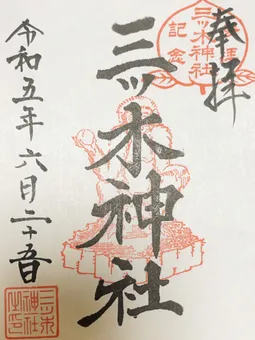 奉拝
三ッ木神社
記念
三ッ木神社
令和五年六月二十五日
三木
神社
之印